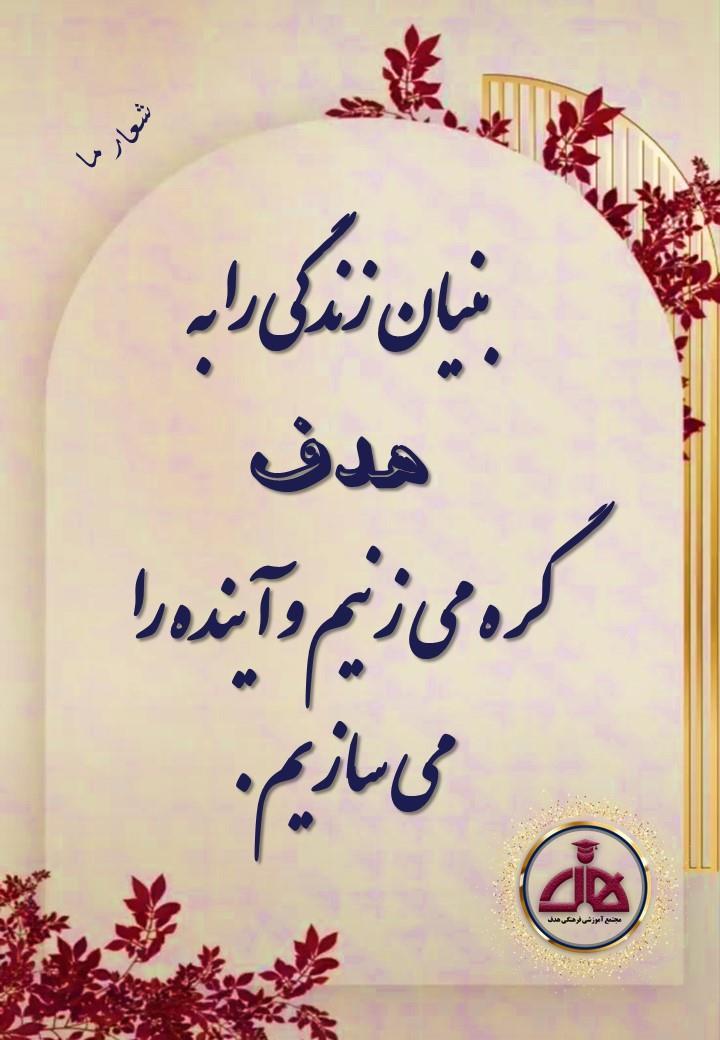 شعار ما
بنیان زندگی را به
هدف
گره می زنیم و آینده را
می سازیم.
هدف
مجتمع آموزشی فرهنگی هدف